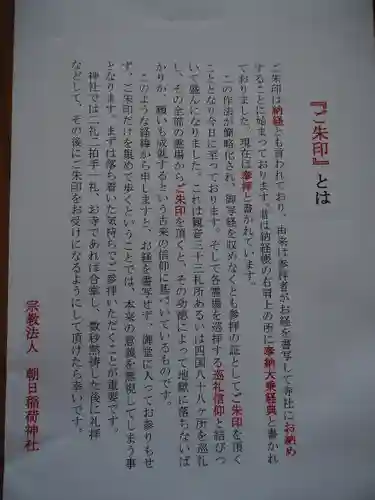 『ご朱印』とは
ご朱印は納経とも言われており、由来は参拝者がお経を書写して寺社にお納め
することに始まっております。昔は納経後の右肩上の所に奉納大乗経典と書かれ
ておりました。現在は奉拝と書かれています。
この作法が簡略化され、御写経を収めなくとも参拝の証としてご朱印を頂く
こととなり今日に至っております。そして各霊場を巡拝する巡礼信仰と結びつ
いて盛んになりました。これは観音三十三札所あるいは四国八十八ヶ所を巡礼
し、その全部の霊場からご朱印を頂くと、その功徳によって地獄に落ちないば
かりか、願いも成就するという古来の信仰に基づいているものです。
このような経緯から申しますと、お経を書写せず、御堂に入ってお参りもせ
ず、ご朱印だけを集めて歩くということでは、本来の意義を無視してしまう事
となります。まずは落ち着いた気持ちでご参拝いただくことが重要です。
神社では二礼二拍手一礼、お寺であれば合掌し、数秒黙祷した後に礼拝
などして、その後にご朱印をお受けになるようにして頂けたら幸いです。
宗教法人 朝日稲荷神社